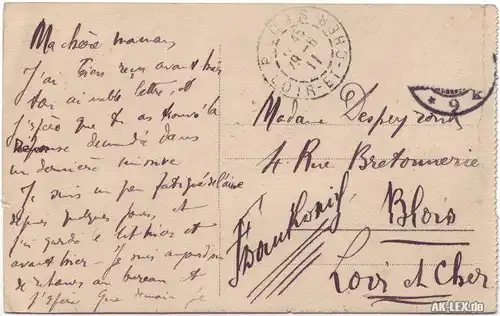 Ma chère maman
J'ai bien reçu avant hier
ton aimable lettre, et
j'espère que tu as trouvé la
Réponse demandée dans
ma dernière
Je suis un peu fatigué
depuis quelques jours, et
j'ai gardé le lit hier et
avant hier - Je suis aujourd'hui
de retour au bureau et
J'espère que demain je
BLOIS
LOIR-ET-CHER
29-6
11
* 9 K
Madame Despeyroux
4 Rue Bretonnerie
Blois
Loir et Cher
AK-LEX.de